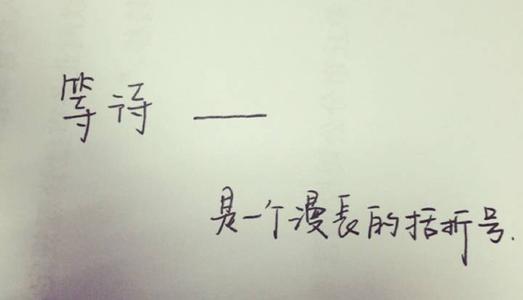 等待 ——
是一个漫長的括折号.